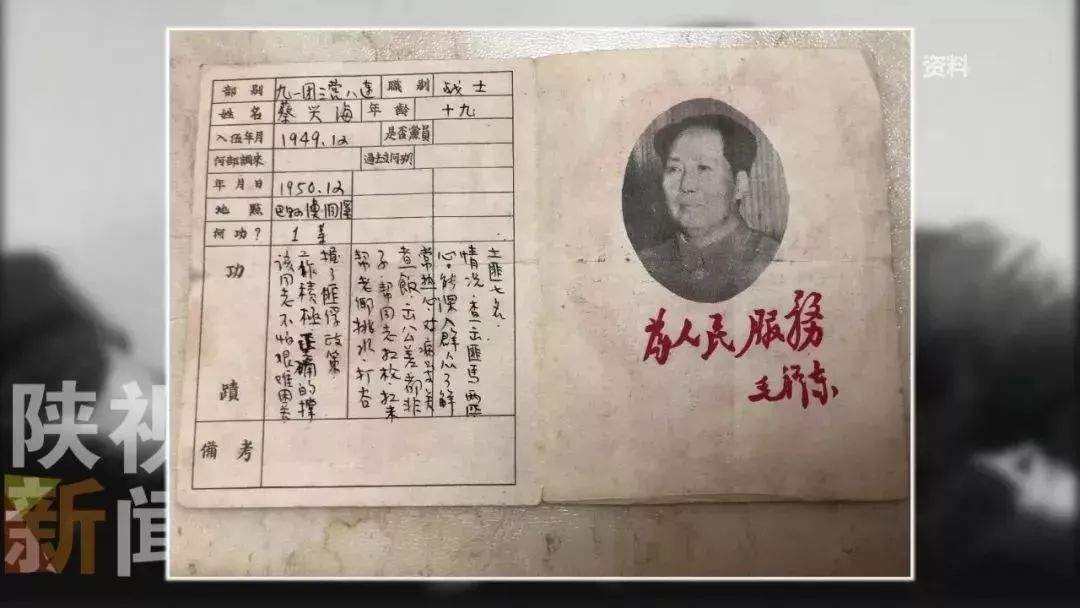 资料
部別 九一团三营八连 職別 战士
姓名 蔡兴海 年齡 十九
入伍年月 1949.12 是否黨員
何部調來 過去立何功?
年月日 1950.12
地點
何功? 1等
功蹟
该同志不怕艰难困苦
工作積極正确的撑
握了匪俘政策
帮老鄉挑水·打
子·帮同志扛枪·扛米
煮飯·出公差都非
常热心·对病号关
心·能深入群众了解
情况·查出匪馬兩匹
土匪七名·
備考
为人民服務
毛泽东
陕视
新闻